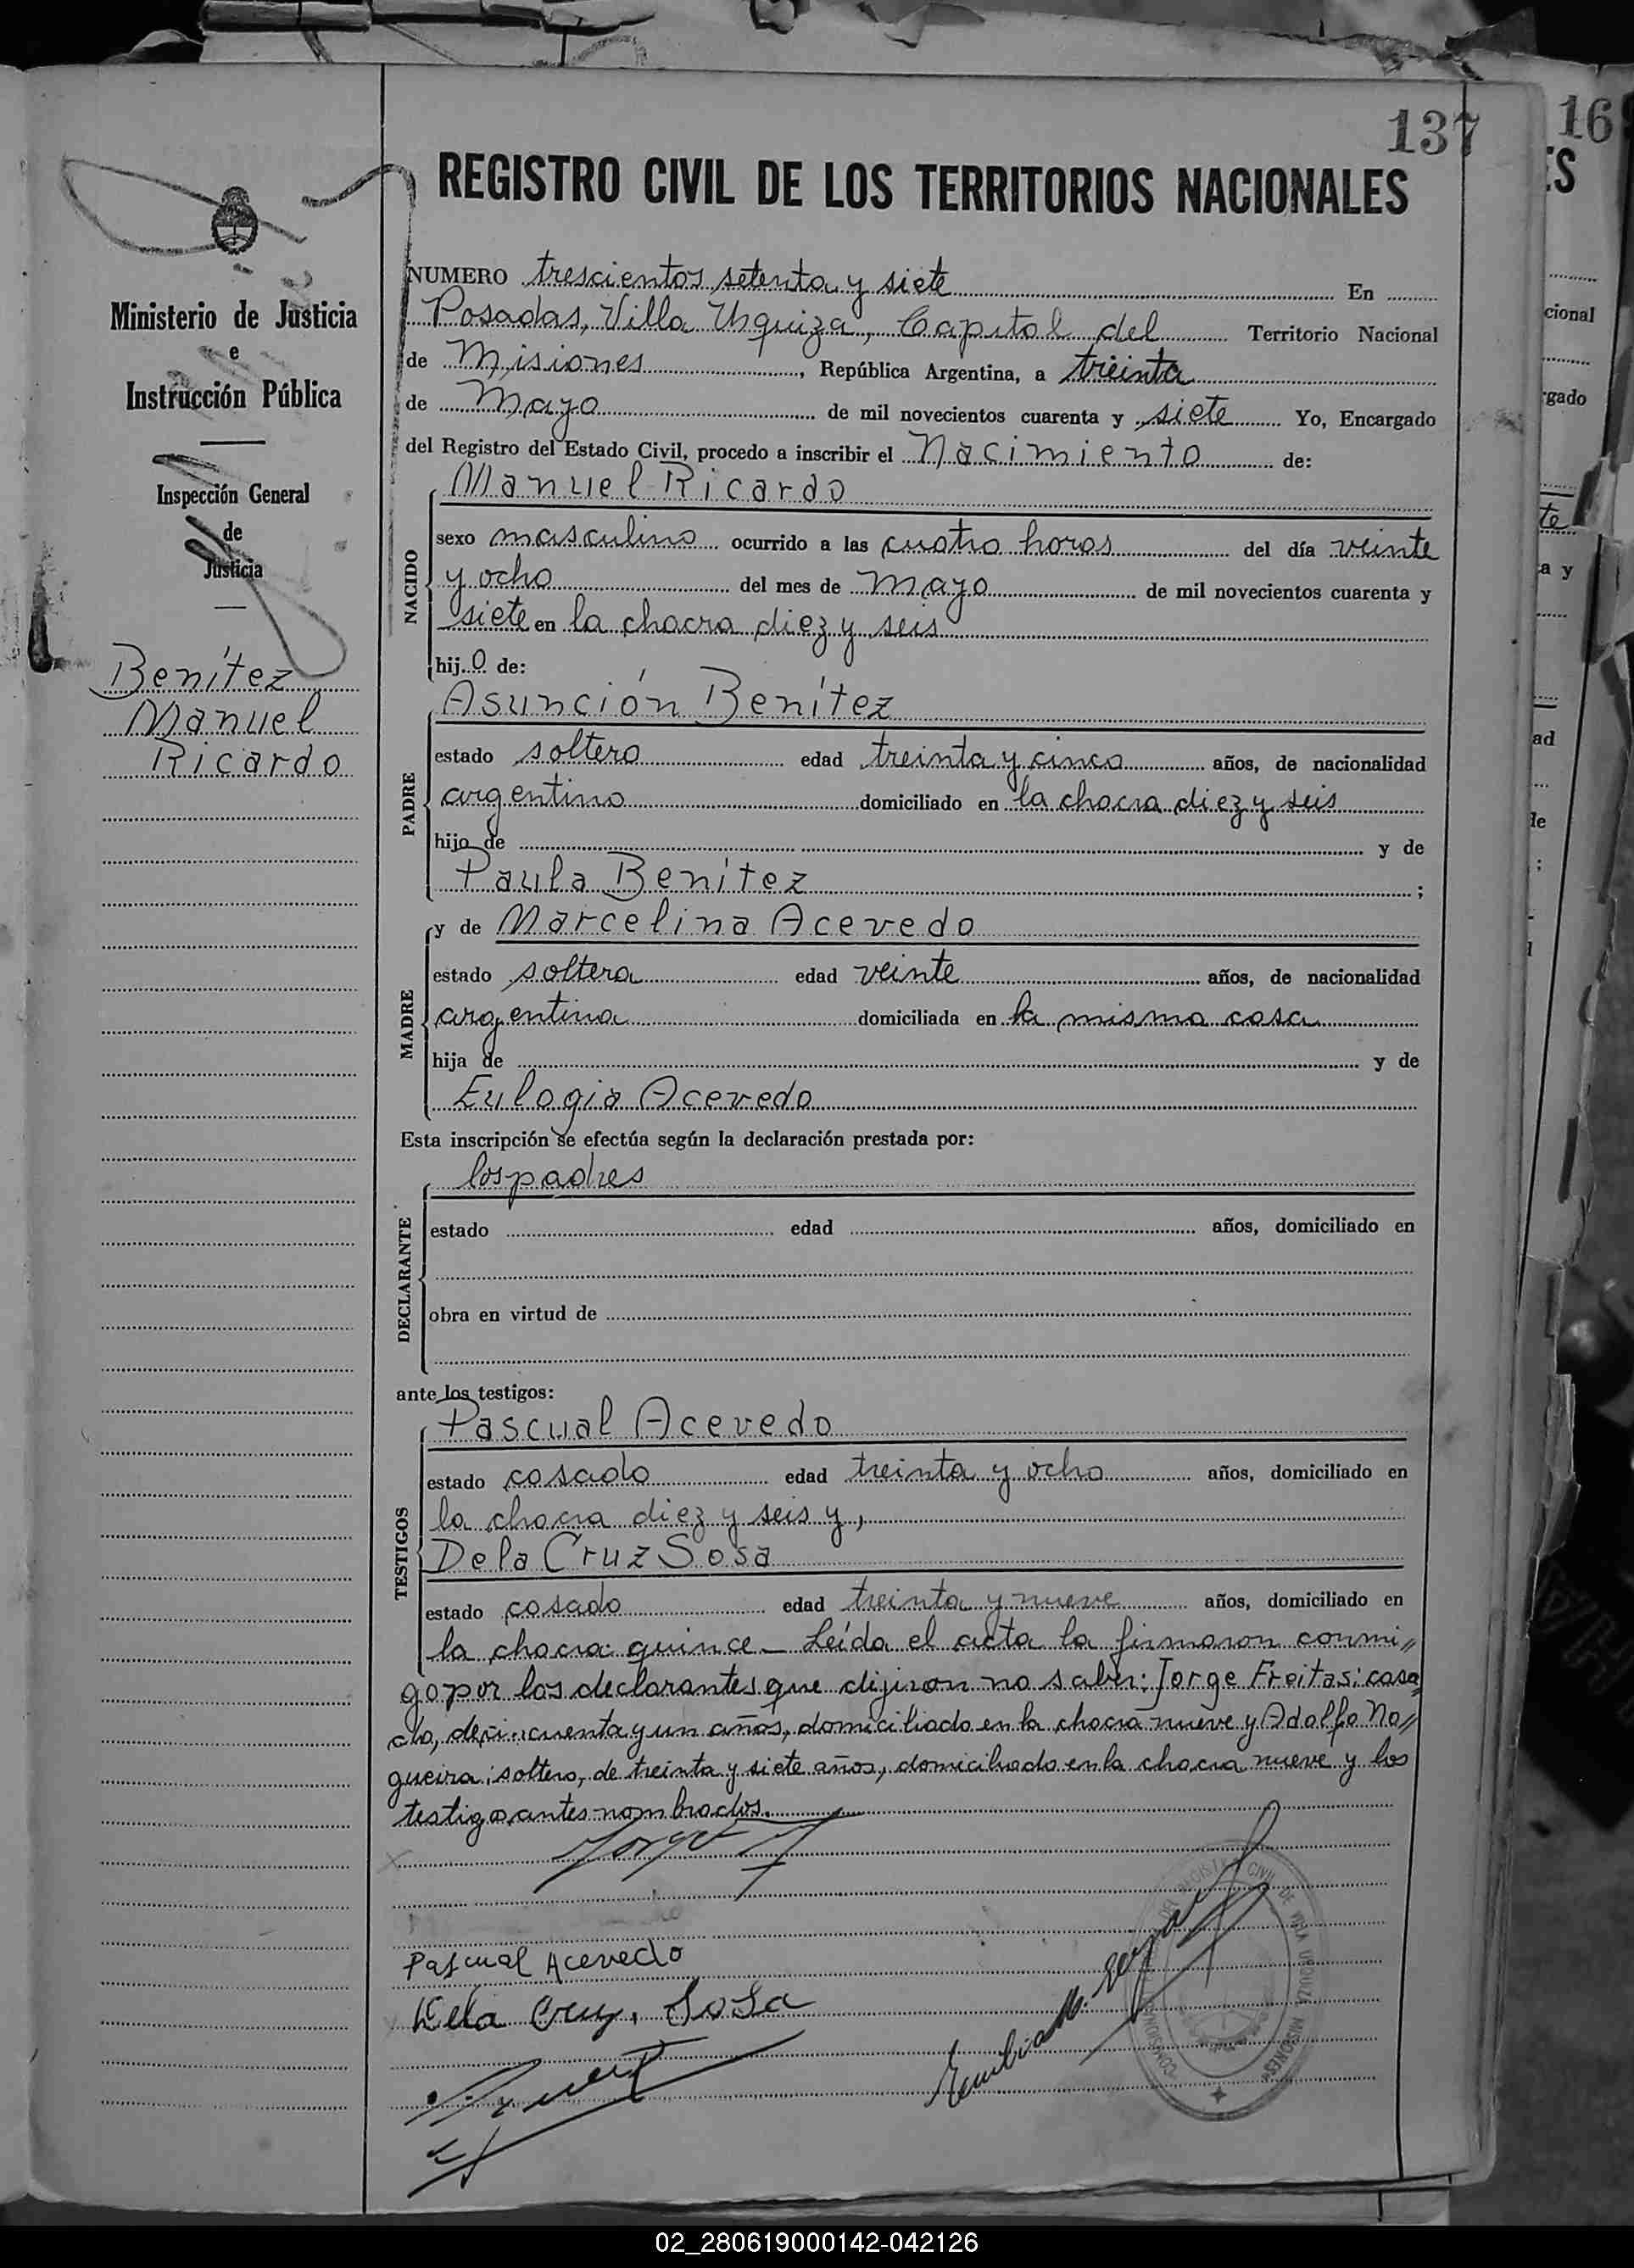 137
16
REGISTRO CIVIL DE LOS TERRITORIOS NACIONALES
ES
Ministerio de Justicia
e
Instrucción Pública
Inspección General
de
Justicia
Benítez
Manuel
Ricardo
NUMERO trescientos setenta y siete En
Posadas, Villa Urquiza, Capital del Territorio Nacional
de Misiones, República Argentina, a treinta
de Mayo de mil novecientos cuarenta y siete Yo, Encargado
del Registro del Estado Civil, procedo a inscribir el Nacimiento de:
NACIDO
Manuel Ricardo
sexo masculino ocurrido a las cuatro horas del día veinte
y ocho del mes de Mayo de mil novecientos cuarenta y
siete en la chacra diez y seis
hijo de:
PADRE
Asunción Benítez
estado soltero edad treinta y cinco años, de nacionalidad
argentino domiciliado en la chacra diez y seis
hijo de y de
Paula Benítez ;
MADRE
y de Marcelina Acevedo
estado soltera edad veinte años, de nacionalidad
argentina domiciliada en la misma casa
hija de y de
Eulogia Acevedo
Esta inscripción se efectúa según la declaración prestada por:
DECLARANTE
los padres
estado edad años, domiciliado en
obra en virtud de
ante los testigos:
TESTIGOS
Pascual Acevedo
estado casado edad treinta y ocho años, domiciliado en
la chacra diez y seis y,
De la Cruz Sosa
estado casado edad treinta y nueve años, domiciliado en
la chacra quince_ Leída el acta la firmaron conmi//
go por los declarantes que dijeron no saber: Jorge Freitas: casa
do, de cincuenta y un años, domiciliado en la chacra nueve y Adolfo No//
gueira: soltero, de treinta y siete años, domiciliado en la chacra nueve y los
testigos antes nombrados.
Jorge F
Pascual Acevedo
Dela Cruz, Sosa
cional
gado
te
a y
ad
de
;
02_280619000142-042126